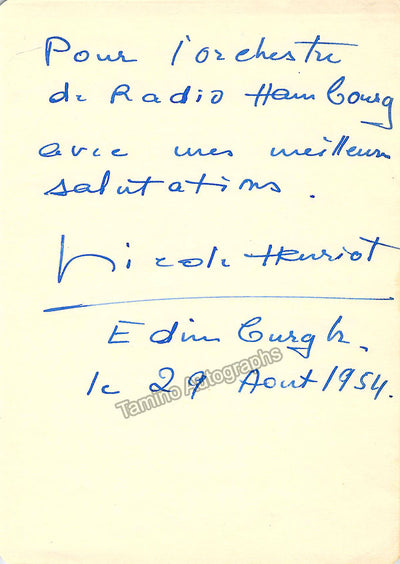 Pour l'orchestre
de Radio Hambourg
avec mes meilleures
salutations.
Nicole Henriot
Edimburgh.
le 29 Août 1954.
Tamino Autographs